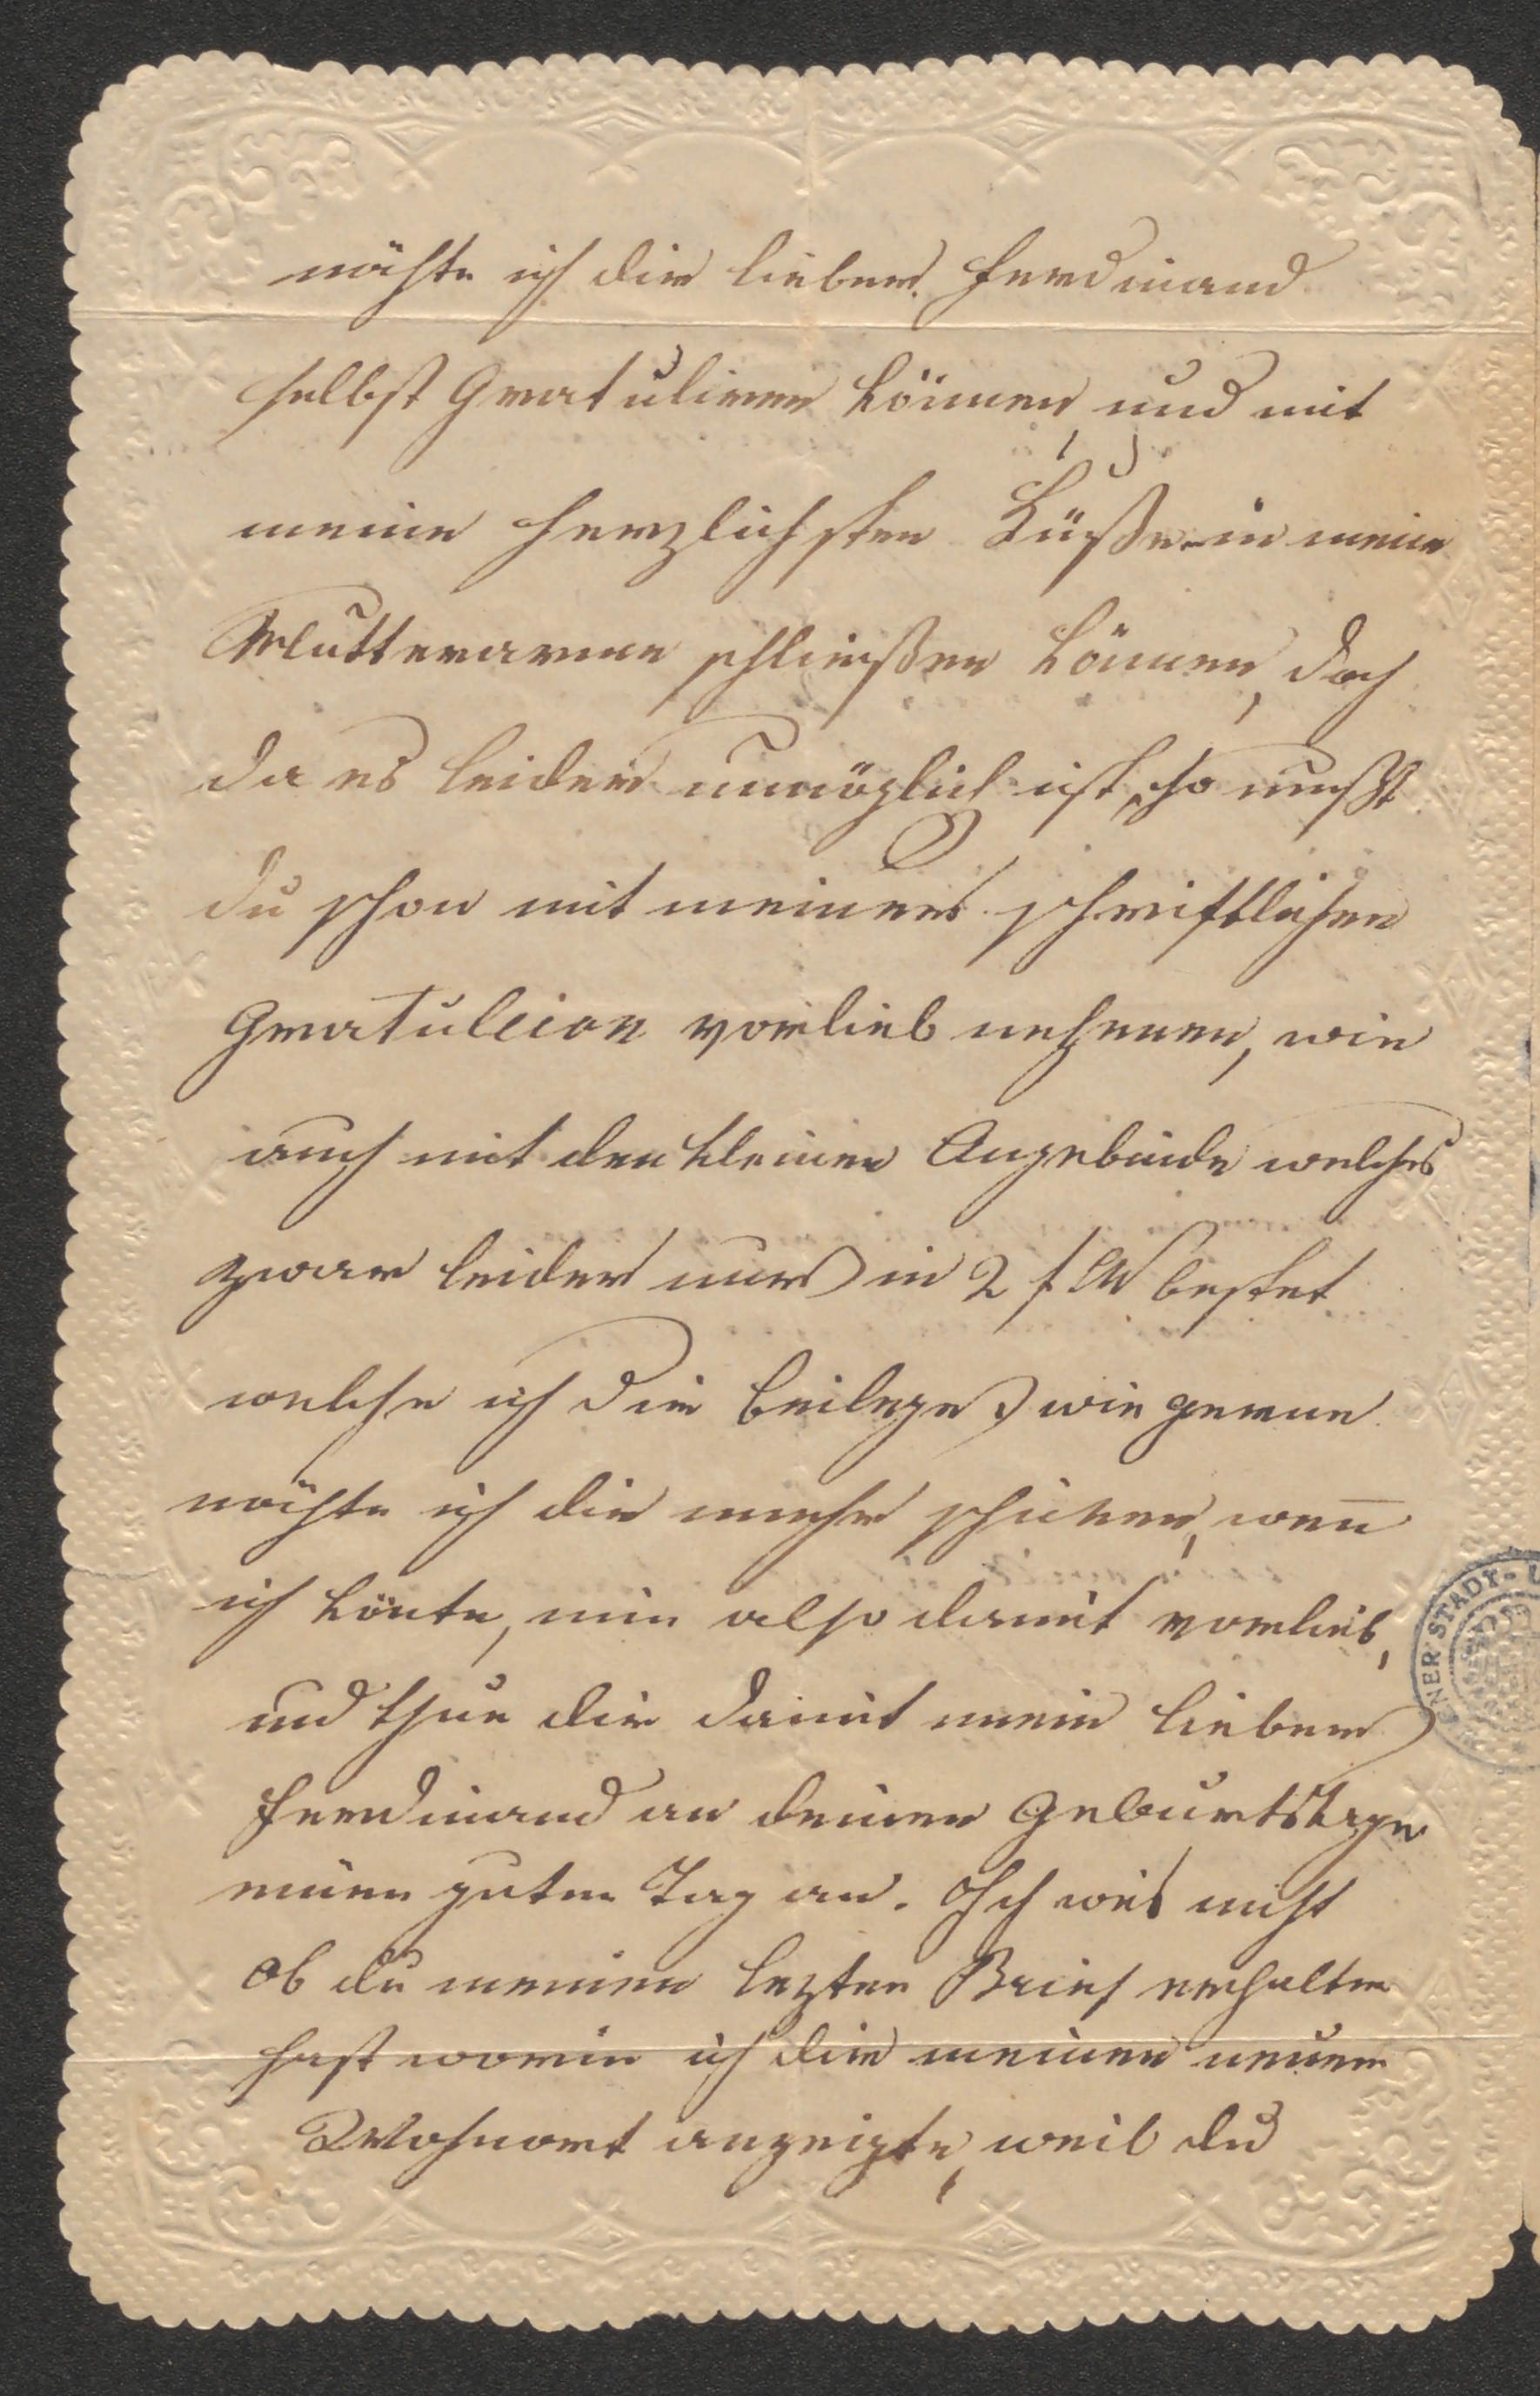 möchte ich dir lieber Ferdinand
selbst Gratuliren können, und mit
meine herzlichsten Küße in meine
Mutterarme schließen können, doch
da es leider unmöglich ist, so mußt
du schon mit meiner schriftlichen
Gratulcion vorlieb nehmen, wie
auch mit den kleinen Angebinde welches
zwar leider nur in 2 f bestet
welche ich dir beilege, wie gerne
möchte ich dir mehr schicken, wen̅
ich könte, nim also damit vorlieb,
und thue dir damit mein lieber
Ferdinand an deinen Geburtstage
einen guten Tag an. Ich weis nicht
ob du meinen lezten Brief erhalten
hast worin ich dir meinen neuen
Wohnort anzeigte, weil du
NER STADT-